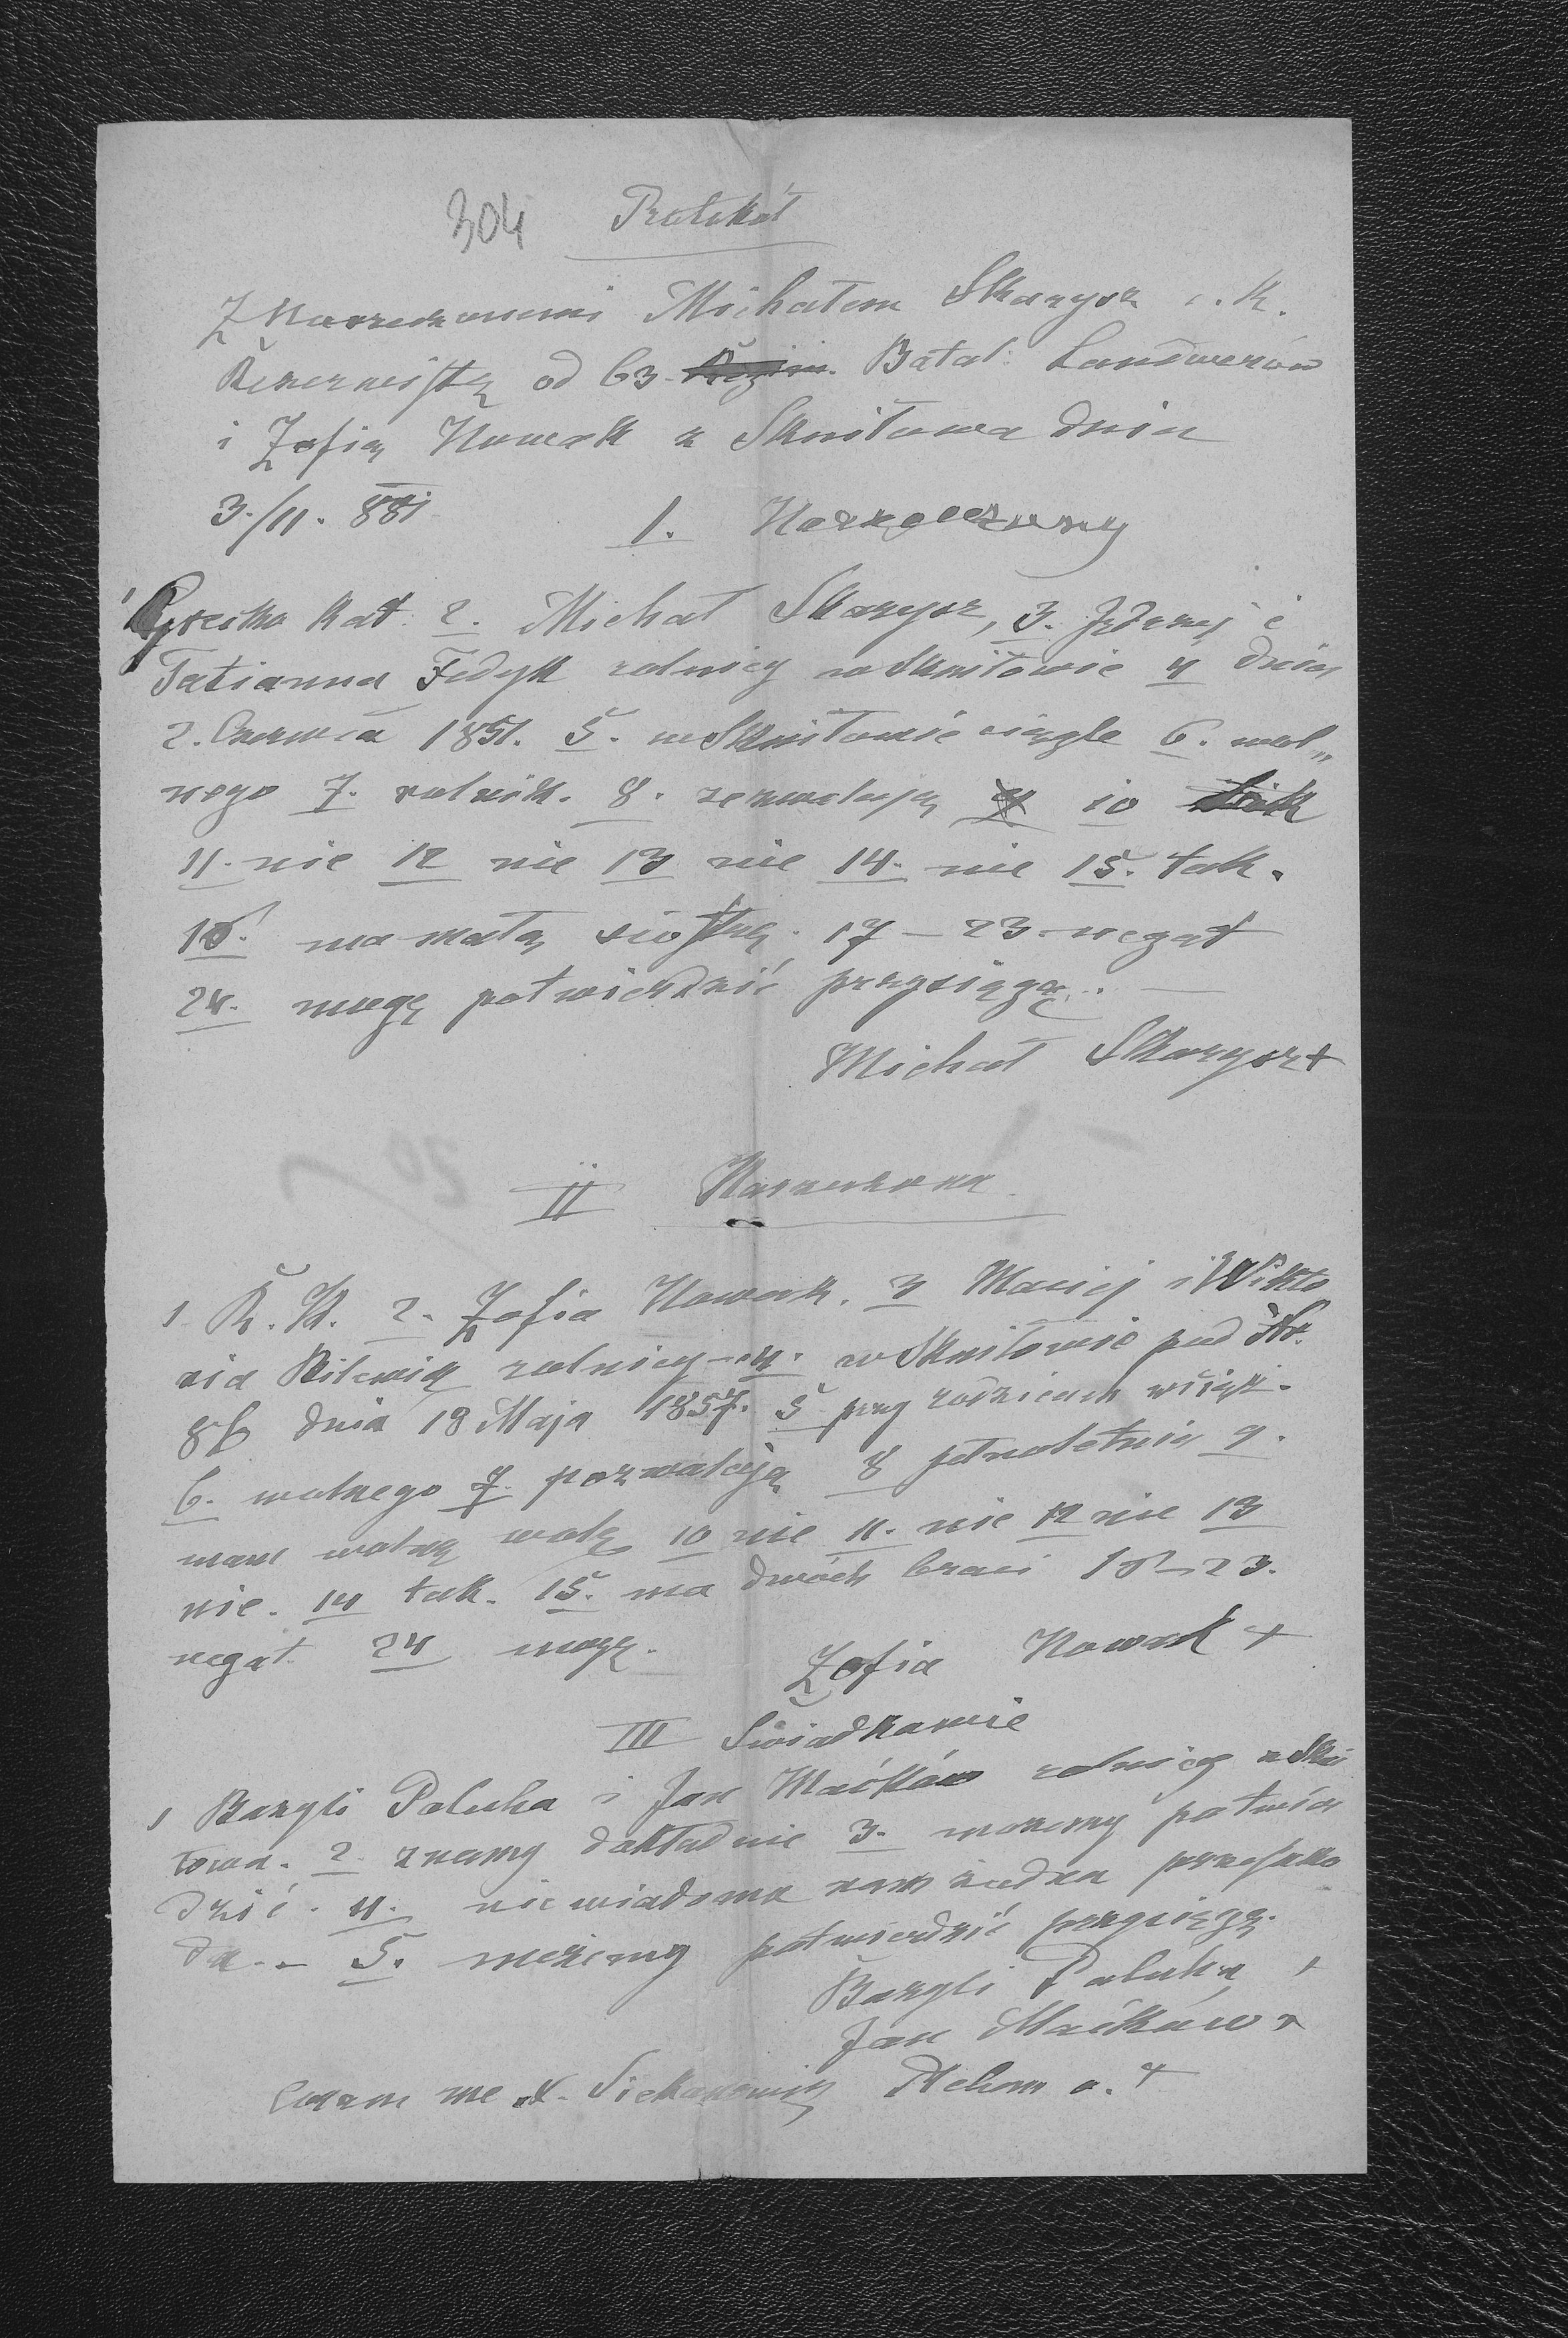 304 Protokół
Z Narzeczonemi Michałem Skarysz c. k.
Rezerwistą od 63. Batal: Landwerów
i Zofią Nowak z Skniłowa dnia
3./11. 881
1. Narzeczony
1 Grecko Kat. 2. Michał Skarysz, 3. Jędrzej i
Tatianna Fedyk rolnicy w Skniłowie 4 dnia
2. Czerwca 1851. 5. w Skniłowie ciągle 6. wol„
nego 7. rolnik. 8. zezwalają 10
11. nie 12 nie 13 nie 14. nie 15. tak.
16. ma małą siostrę. 17 – 23 negat
24. mogę potwierdzić przysięgą. —
Michał Skarysz +
II Narzeczona
1 R. K. 2. Zofia Nowak. 3 Maciej i Wikto
ria rolnicy – 4. w Skniłowie pod Nr.
86 dnia 18 Maja 1857. 5 przy rodzicach wciąż.
6. wolnego 7. pozwalają 8 pełnoletnia 9.
mam wolną wolę 10 nie 11. nie 12 nie 13
nie. 14 tak. 15. ma dwóch braci 16 – 23.
negat. 24 mogę.
Zofia Nowak +
III Świadkowie
1 Bazyli Paluha i Jan Maćków rolnicy z Skni
łowa. 2. znamy dokładnie 3. możemy potwier
dzić. 4. niewiadoma nam żadna przeszko
da. – 5. możemy potwierdzić przysięgą.
Bazyli Paluha +
Jan Maćków +
Coram me X.